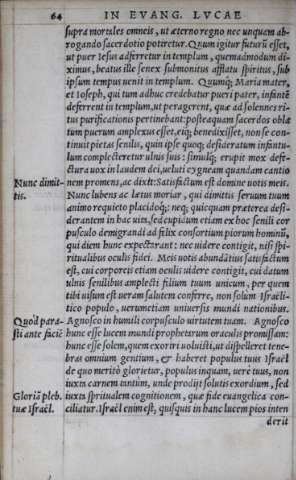 64 IN EVANG. LVCAE
supra mortales omneis, ut æterno regno nec unquam ab-
rogando sacerdotio potiretur. Quum igitur futurũ esset,
ut puer Iesus adferretur in templum, quemadmodum di-
ximus, beatus ille senex submonitus afflatu spiritus, sub
ipsum tempus uenit in templum. Quumq́; Maria mater,
et Ioseph, qui tum adhuc credebatur pueri pater, infantẽ
deferrent in templum, ut peragerent, quæ ad solennes ri-
tus purificationis pertinebant: posteaquam sacerdos obla
tum puerum amplexus esset, eiq́; benedixisset, non se con-
tinuit pietas senilis, quin ipse quoq; desideratum infantu-
lum complecteretur ulnis suis: simulq́; erupit mox defe-
ctura uox in laudem dei, ueluti cygneam quandam cantio
Nunc dimit- nem promens, ac dixit: Satisfactum est domine uotis meis.
tis. Nunc lubens ac lætus moriar, qui dimittis seruum tuum
animo requieto placidoq́; neq; quicquam præterea desi-
derantem in hac uita, sed cupidum etiam ex hoc senili cor
pusculo demigrandi ad felix consortium piorum hominũ,
qui diem hunc expectarant: nec uidere contigit, nisi spi-
ritualibus oculis fidei. Meis uotis abundãtius satisfactum
est, cui corporeis etiam oculis uidere contigit, cui datum
ulnis senilibus amplecti filium tuum unicum, per quem
tibi uisum est ueram salutem conferre, non solum Israëli-
tico populo, uerumetiam uniuersis mundi nationibus.
Quod para- Agnosco in humili corpusculo uirtutem tuam. Agnosco
sti ante faciẽ hunc esse lucem mundi prophetarum oraculis promissam:
hunc esse solem, quem exoriri uoluisti, ut dispelleret tene-
bras omnium gentium, & haberet populus tuus Israël
de quo merito glorietur, populus inquam, uere tuus, non
iuxta carnem tantùm, unde prodijt salutis exordium, sed
Gloriã pleb. iuxta spiritualem cognitionem, quæ fide euangelica con-
tuæ Israël. ciliatur. Israël enim est, quisquis in hanc lucem pios inten
derit